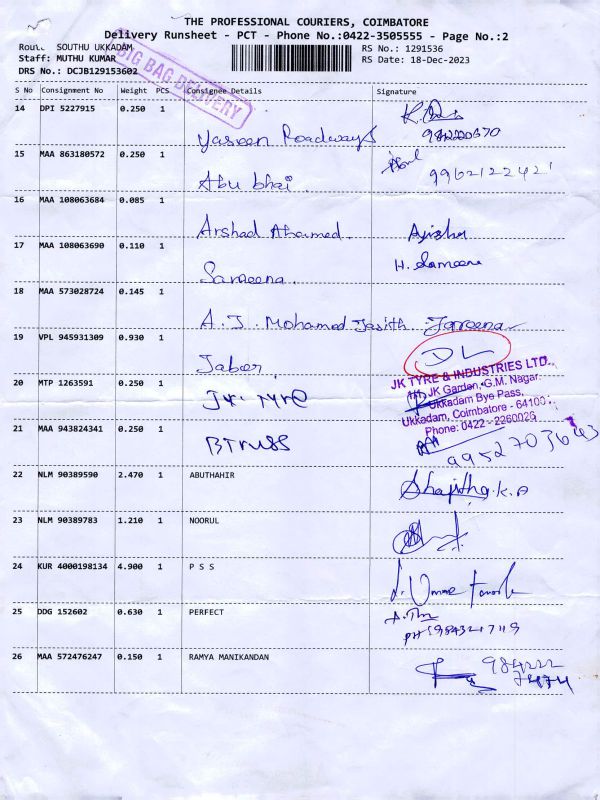 THE PROFESSIONAL COURIERS, COIMBATORE
Delivery Runsheet - PCT - Phone No.:0422-3505555 - Page No.:2
Route SOUTHU UKKADAM RS No.: 1291536
Staff: MUTHU KUMAR RS Date: 18-Dec-2023
DRS No.: DCJB129153602
BIG BAG DELIVERY
S No Consignment No Weight PCS Consignee Details Signature
14 DPI 5227915 0.250 1
Yasreen Roadways
15 MAA 863180572 0.250 1
Abu bhai. 9962122421
16 MAA 108063684 0.085 1
Arshad Ahamed. Ayisha
17 MAA 108063690 0.110 1
Sameena. H. Sameena
18 MAA 573028724 0.145 1
A. J. Mohamed Jasith Jareena
19 VPL 945931309 0.930 1 DL
Jaber.
20 MTP 1263591 0.250 1 JK TYRE & INDUSTRIES LTD.,
JK Tyre JK Garden, G.M. Nagar,
Ukkadam Bye Pass,
21 MAA 943824341 0.250 1 Ukkadam, Coimbatore - 64100
Phone: 0422 - 2260026
BTRUSS
22 NLM 90389590 2.470 1 ABUTHAHIR Shajitha.K.A
23 NLM 90389783 1.210 1 NOORUL
24 KUR 4000198134 4.900 1 P S S
25 DDG 152602 0.630 1 PERFECT
26 MAA 572476247 0.150 1 RAMYA MANIKANDAN 984222
7474